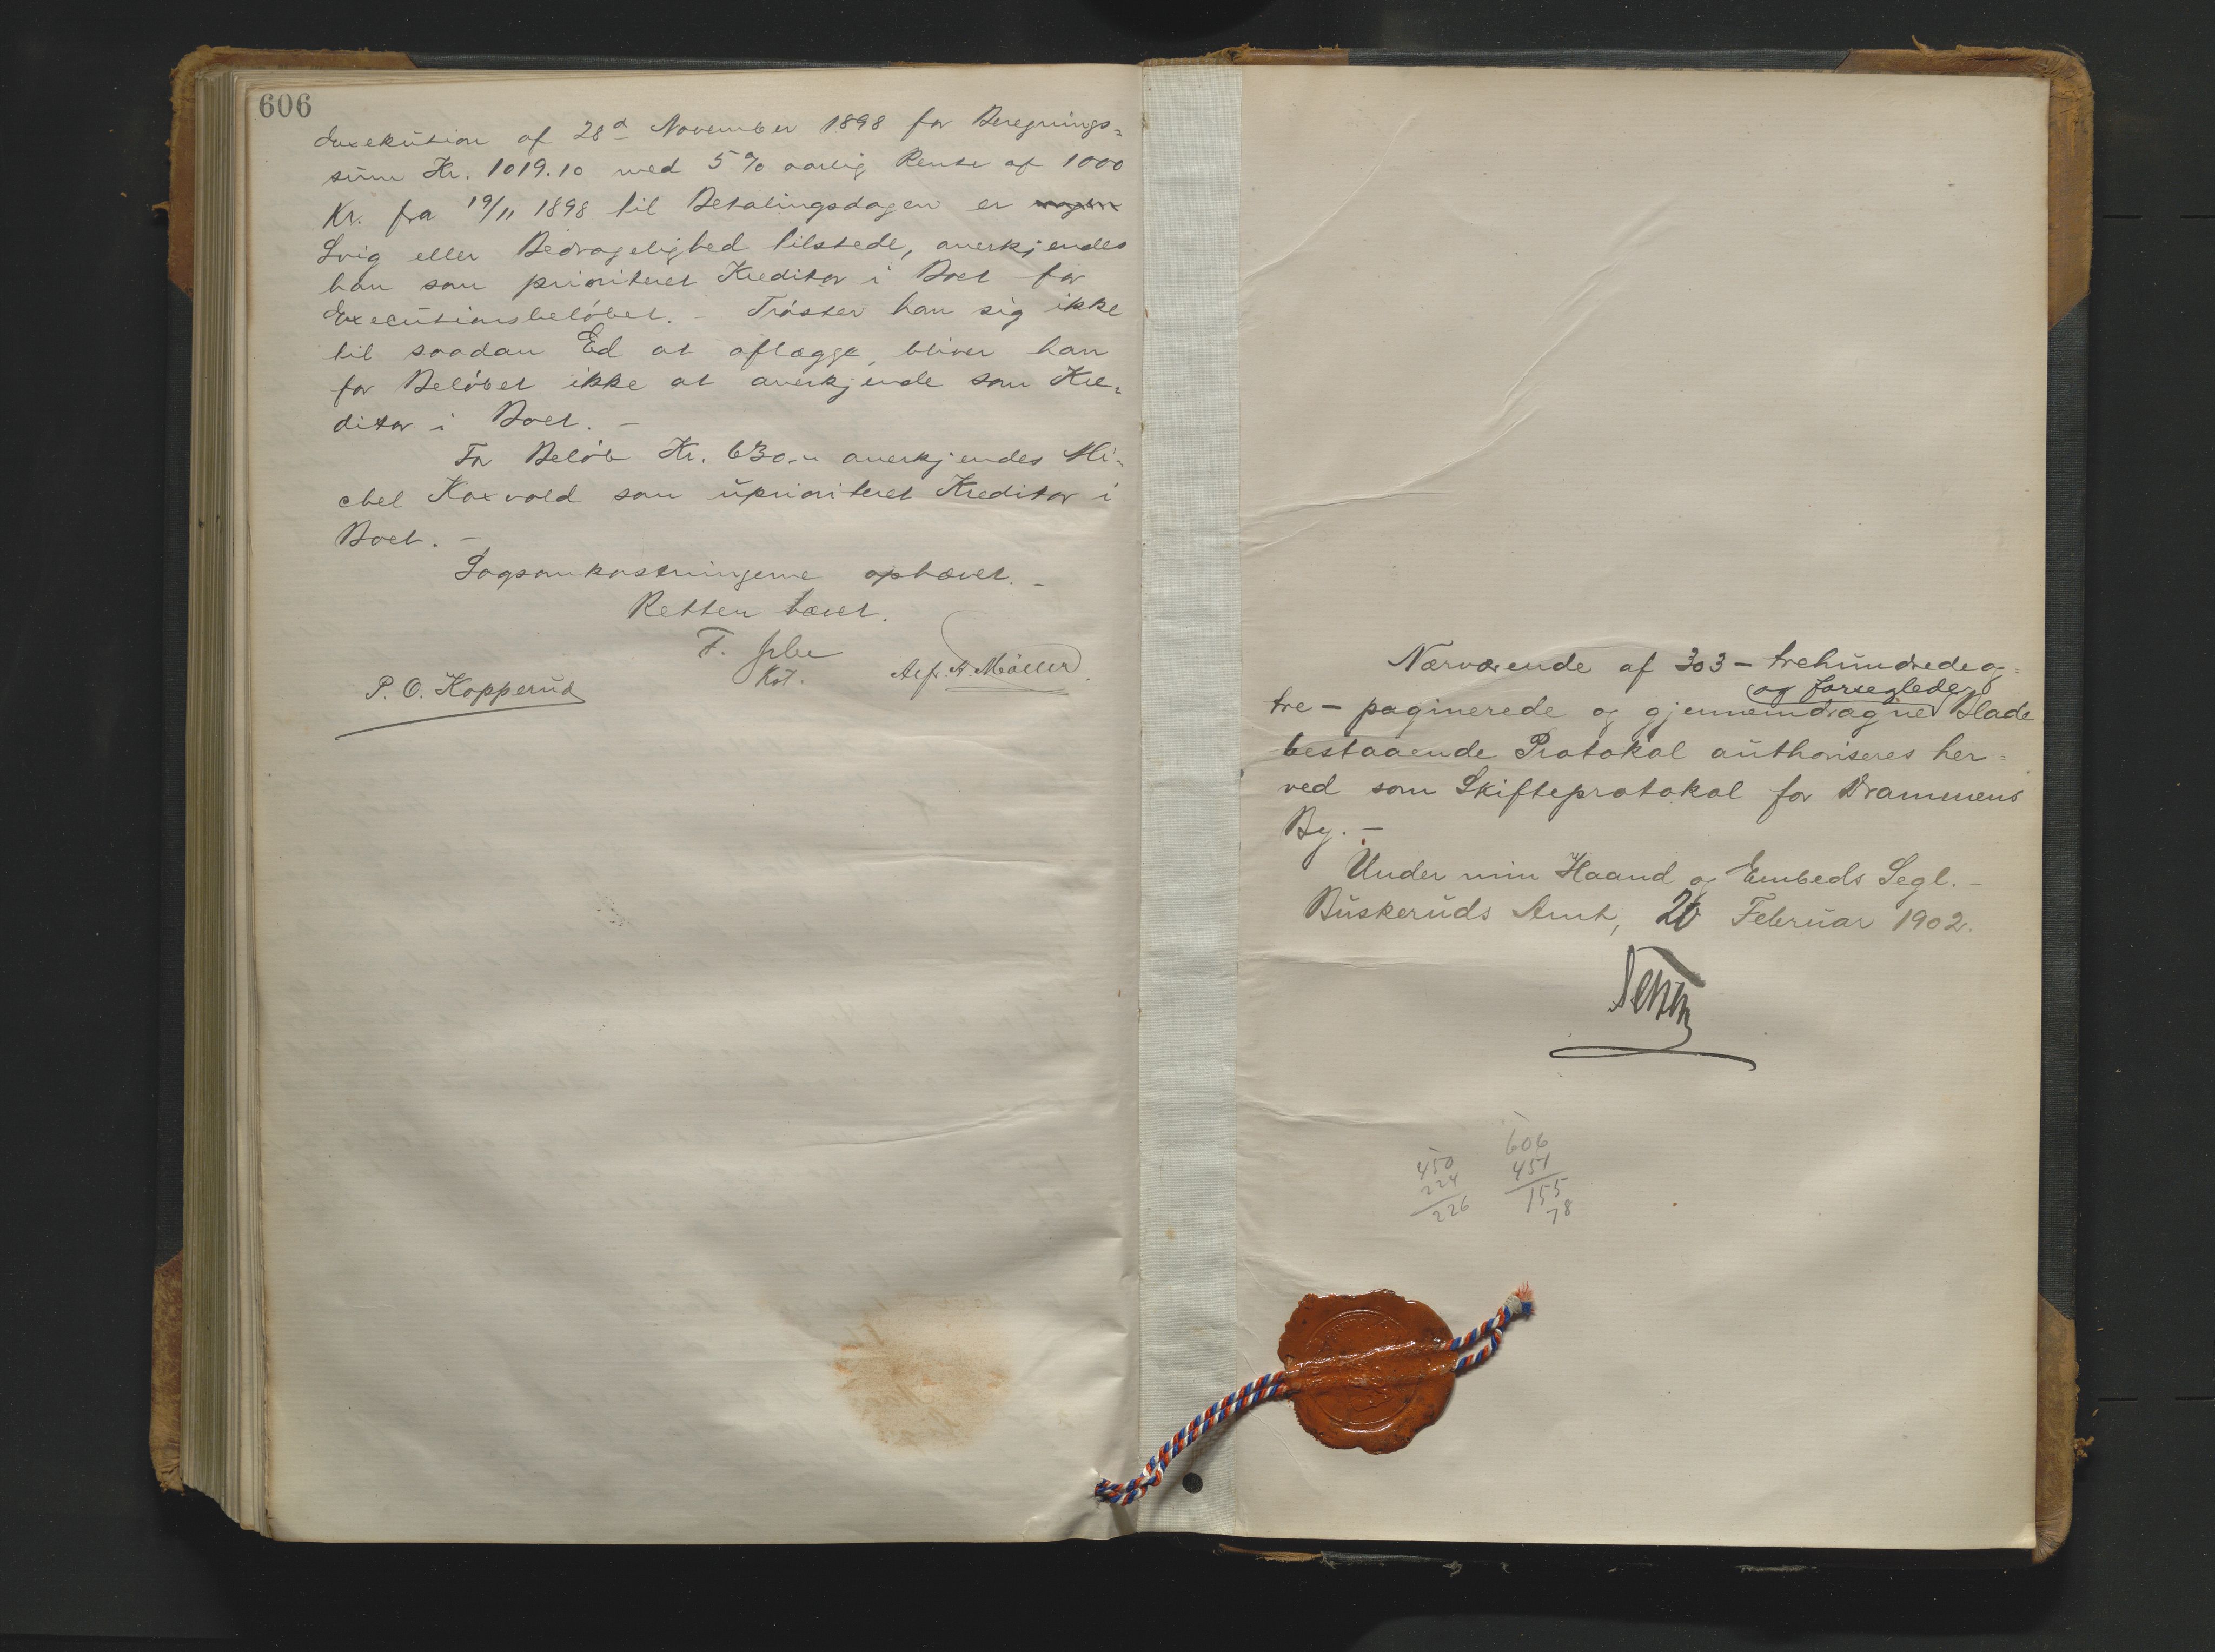 606
Exekution af 28d November 1898 for Beregnings=
sum Kr. 1019.10 med 5 % aarlig Rente af 1000
Kr. fra 19/11 1898 til Betalingsdagen er
Svig eller Bedragelighed tilstede, anerkjendes
han som prioriteret Kreditor i Boet for
Executionsbeløbet. – Trøster han sig ikke
til saadan Ed at aflægge, bliver han
for Beløbet ikke at anerkjende som Kre=
ditor i Boet. –
For Beløb Kr. 630,- anerkjendes Mi=
chel Koxvold som uprioriteret Kreditor i
Boet. –
Sagsomkostningerne ophæves. –
Retten hævet.
F.
Kst.
Alf. A. Møller
P. O. Kopperud
Nærværende af 303 – trehundredeog=
og forseglede
tre – paginerede og gjennemdragne Blade
bestaaende Protokol authoriseres her=
ved som Skifteprotokol for Drammens
By. –
Under min Haand og Embeds Segl. –
Buskeruds Amt, 20 Februar 1902.
450
224
226
606
451
155
78